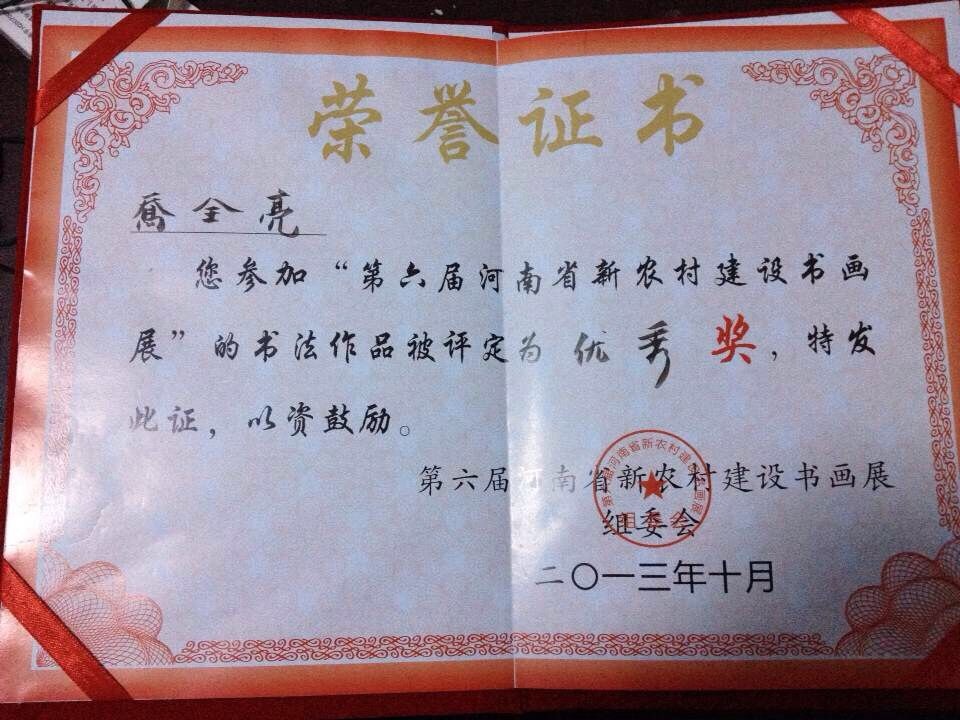 荣誉证书
喬全亮
您参加“第六届河南省新农村建设书画
展”的书法作品被评定为优秀奖，特发
此证，以资鼓励。
第六届河南省新农村建设书画展
组委会
二〇一三年十月